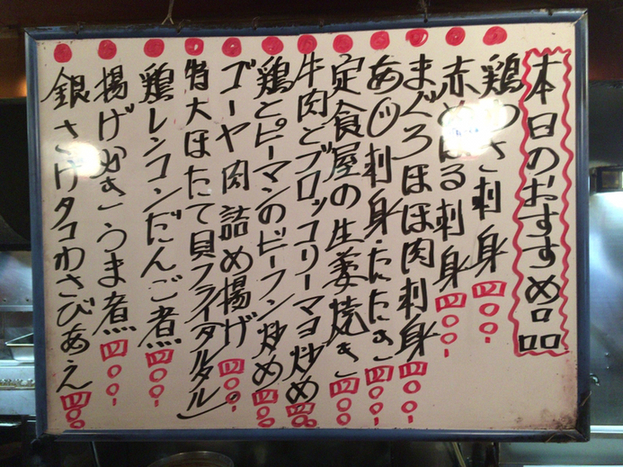 本日のおすすめ品
鶏わさ刺身 四〇〇-
赤めばる刺身 四〇〇-
まぐろほほ肉刺身 四〇〇-
あじ刺身・たたき 四〇〇-
定食屋の生姜焼き 四〇〇-
牛肉とブロッコリーマヨ炒め 四〇〇-
鶏とピーマンのビーフン炒め 四〇〇-
ゴーヤ肉詰め揚げ 四〇〇-
特大ほたて貝フライ(タルタル)
鶏レンコンだんご煮 四〇〇-
揚げかきうま煮 四〇〇-
銀さけタコわさびあえ 四〇〇-